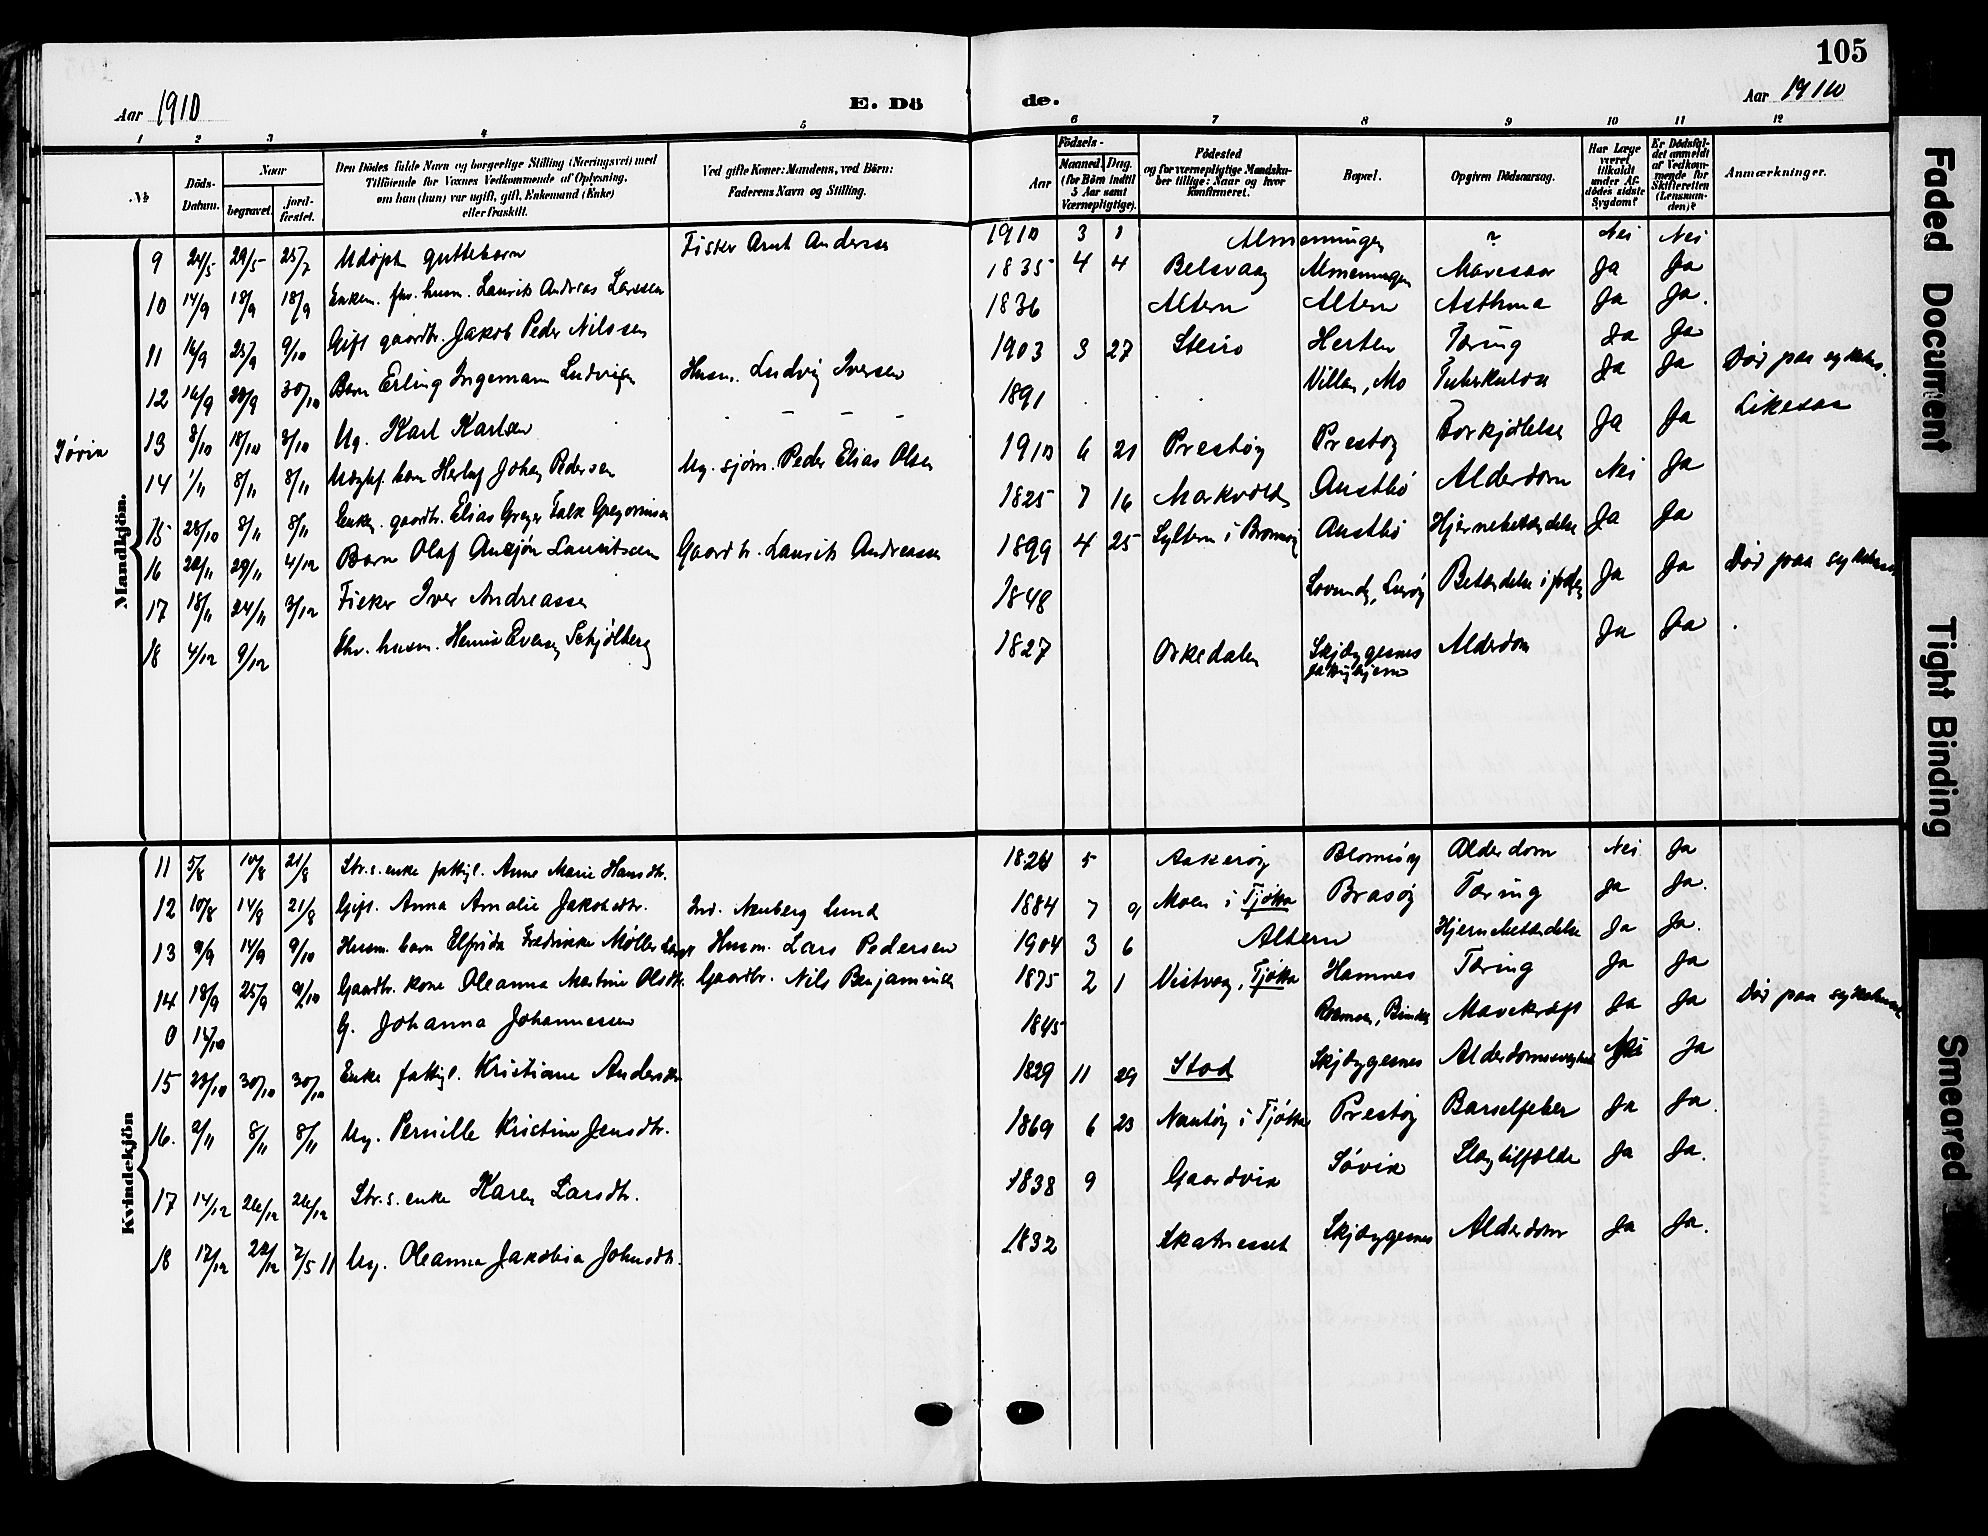 105
Aar 1910 E. Dö de. Aar 1910
1 2 3 4 5 6 7 8 9 10 11 12
№
Döds-Datum.
Naar
begravet.
jord-fæstet.
Den Dödes fulde Navn og borgerlige Stilling (Næringsvei) med
Tilföiende for Voxnes Vedkommende af Oplysning,
om han (hun) var ugift, gift, Enkemand (Enke)
eller fraskilt.
Ved gifte Koner: Mandens, ved Börn:
Faderens Navn og Stilling.
Födsels-
Aar
Maaned. Dag.
(for Börn indtil
5 Aar samt
Værnepligtige).
Födested
og for værnepligtige Mandska-
ber tillige: Naar og hvor
konfirmeret.
Bopæl.
Opgiven Dödsaarsag.
Har Læge
været
tilkaldt
under Af-
dödes sidste
Sygdom?
Er Dödsfal-
det anmeldt
af Vedkom-
mende for
Skifteretten
(Lensman-
den)?
Anmærkninger.
Mandkjön.
9 24/5 29/5 25/7 Udøpt guttebarn Fisker Arnt Andersen 1910 3 1 Almenningen ? Nei Nei
10 14/9 18/9 18/9 Enkem. fhv. husm. Laurits Andreas Larssen 1835 4 4 Belsvaag Almenningen Mavesaar Ja Ja
11 16/9 25/9 9/10 Gift gaardbr. Jakob Peder Nilssen 1836 Altern Altern Asthma Ja Ja.
12 16/9 20/9 30/10 Barn Erling Ingemann Ludvigsen Husm. Ludvig Iversen 1903 3 27 Steiro Herten Tæring Ja Ja
Søvik 13 8/10 18/10 8/10 Ug. Karl Karlsen - - - 1891 Villa, Mo Tuberkulose Ja Ja Død paa sykehus.
14 1/11 8/11 8/11 Uægtef. barn Herluf Johan Pedersen Ug. sjøm. Peder Elias Olsen 1910 6 21 Prestøy Prestøy Forkjølelse Ja Ja Likesaa
15 28/10 8/11 8/11 Enkem. gaardbr. Elias Greger Falk Gregoriussen 1825 7 16 Markvold Austbø Alderdom Nei Ja
16 22/11 29/11 4/12 Barn Olaf Ansjøn Lauritsen Gaardbr. Laurits Andreassen 1899 4 25 Sylten i Brønnøy Austbø Hjernebetændelse Ja Ja
17 18/11 24/11 3/12 Fisker Iver Andreassen 1848 Lovund, Lurøy Betændelse i Ja Ja Død paa sykehus
18 4/12 9/12 Fhv. husm. Schjølberg 1827 Orkedalen Skjæggesnes Alderdom Ja Ja
Kvindekjön
11 5/8 14/8 21/8 Str.s. enke fattigl. Anne Marie Hansdtr. 5 Aakerøy Blomsøy Alderdom Nei Ja
12 10/8 14/8 21/8 Gift. Anna Amalie Jakobsdtr. Ind. Nauberg Lund 1884 7 9 Moen i Tjøtta Brasøy Tæring Ja Ja.
13 9/9 14/9 9/10 Husm. barn Elfrida Fredrikke Møller Larsen Husm. Lars Pedersen 1904 3 6 Altern Hjernebetændelse Ja Ja.
14 18/9 25/9 9/10 Gaardbr. kone Oleanna Martine Olsdtr. Gaardbr. Nils Benjaminsen 1875 2 1 Vistvæg, Tjøtta Hamnes Tæring Ja Ja
0 14/10 G. Johanna Johannessen 1845 Bindal Mavekræft Ja Ja Død paa sykehuset
15 23/10 30/10 30/10 Enke fattigl. Kristiane Andersdtr. 1829 11 29 Stod Skjæggesnes Alderdomssvaghet Nei Ja
16. 2/11 8/11 8/11 Ug. Pernille Kristine Jensdtr. 1869 6 23 i Tjøtta Prestøy Barselfeber Ja Ja.
17 14/12 26/12 26/12 Str.s. enke Karen Larsdtr. 1838 9 Gaardvik Søvik Slagtilfælde Ja Ja.
18 17/12 22/12 7/5 11 Ug. Oleanna Jakobia Johnsdtr. 1832 Skatnesset Skjæggesnes Alderdom Ja Ja.
Faded Document
Tight Binding
Smeared